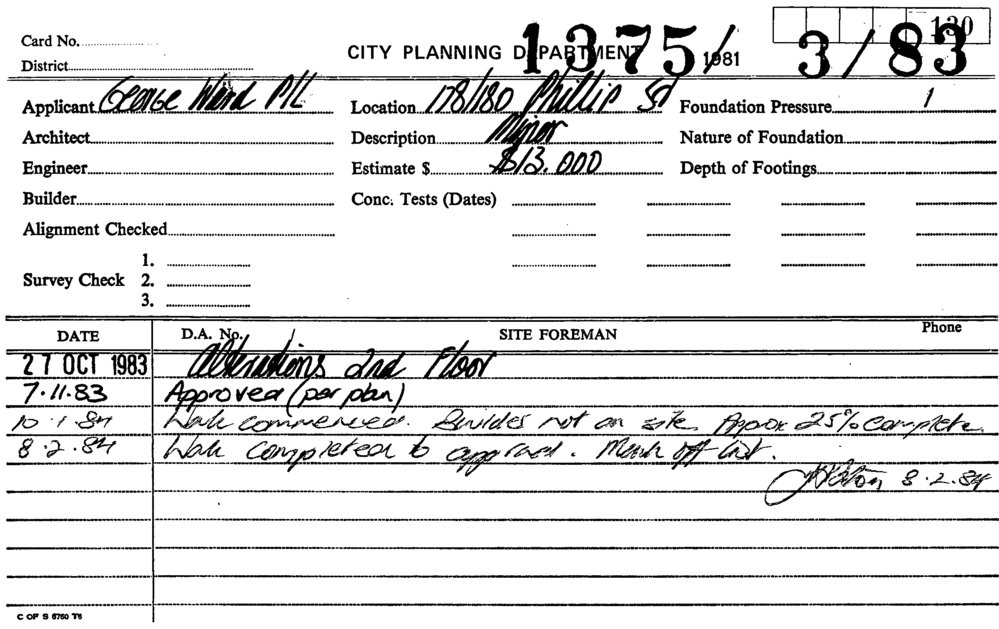 130
Card No.
CITY PLANNING DEPARTMENT 1375/ 1981 3/83
District
Applicant George Ward P/L Location 178/180 Phillip St Foundation Pressure 1
Architect Description Minor Nature of Foundation
Engineer Estimate $ $13,000 Depth of Footings
Builder Conc. Tests (Dates)
Alignment Checked
1.
Survey Check 2.
3.
DATE D.A. No. SITE FOREMAN Phone
27 OCT 1983 Alterations 2nd Floor
7.11.83 Approved (per plan)
10.1.84 Work commenced. Builder not on site. Approx 25% complete.
8.2.84 Work completed to approval. Mark off list.
8.2.84
C OF S 6760 T6